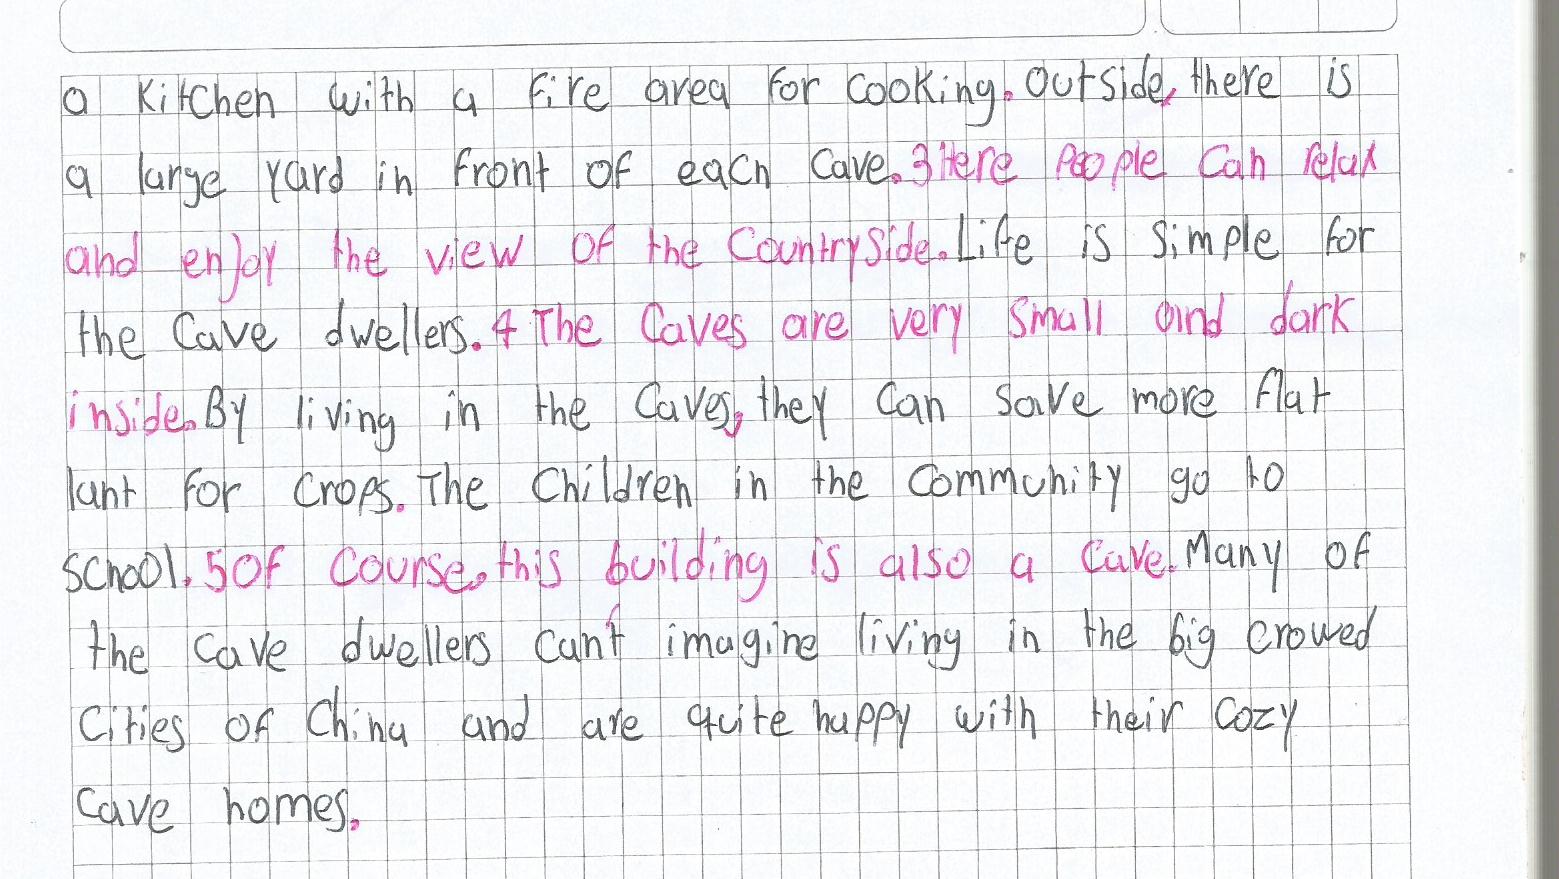 a kitchen with a fire area for cooking. Outside, there is
a large yard in front of each cave. 3 Here people can relax
and enjoy the view of the countryside. Life is simple for
the cave dwellers. 4 The caves are very small and dark
inside. By living in the caves, they can save more flat
lant for crops. The children in the community go to
school. 5 Of course, this building is also a cave. Many of
the cave dwellers can't imagine living in the big crowed
cities of China and are quite happy with their cozy
cave homes.